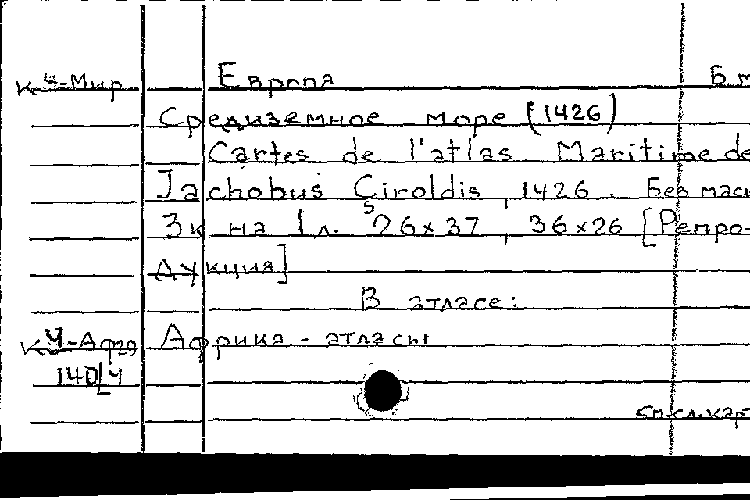 К 4-Мир Европа Б.м
Средиземное море (1426)
Cartes de l'atlas Maritime de
Jachobus Ciroldis, 1426. Без мас
3к на 1 л. 26x37, 36x26 [Репро-
дукция]
В атласе:
К 4-Афр Африка - атласы
140/4
см.сл.кар